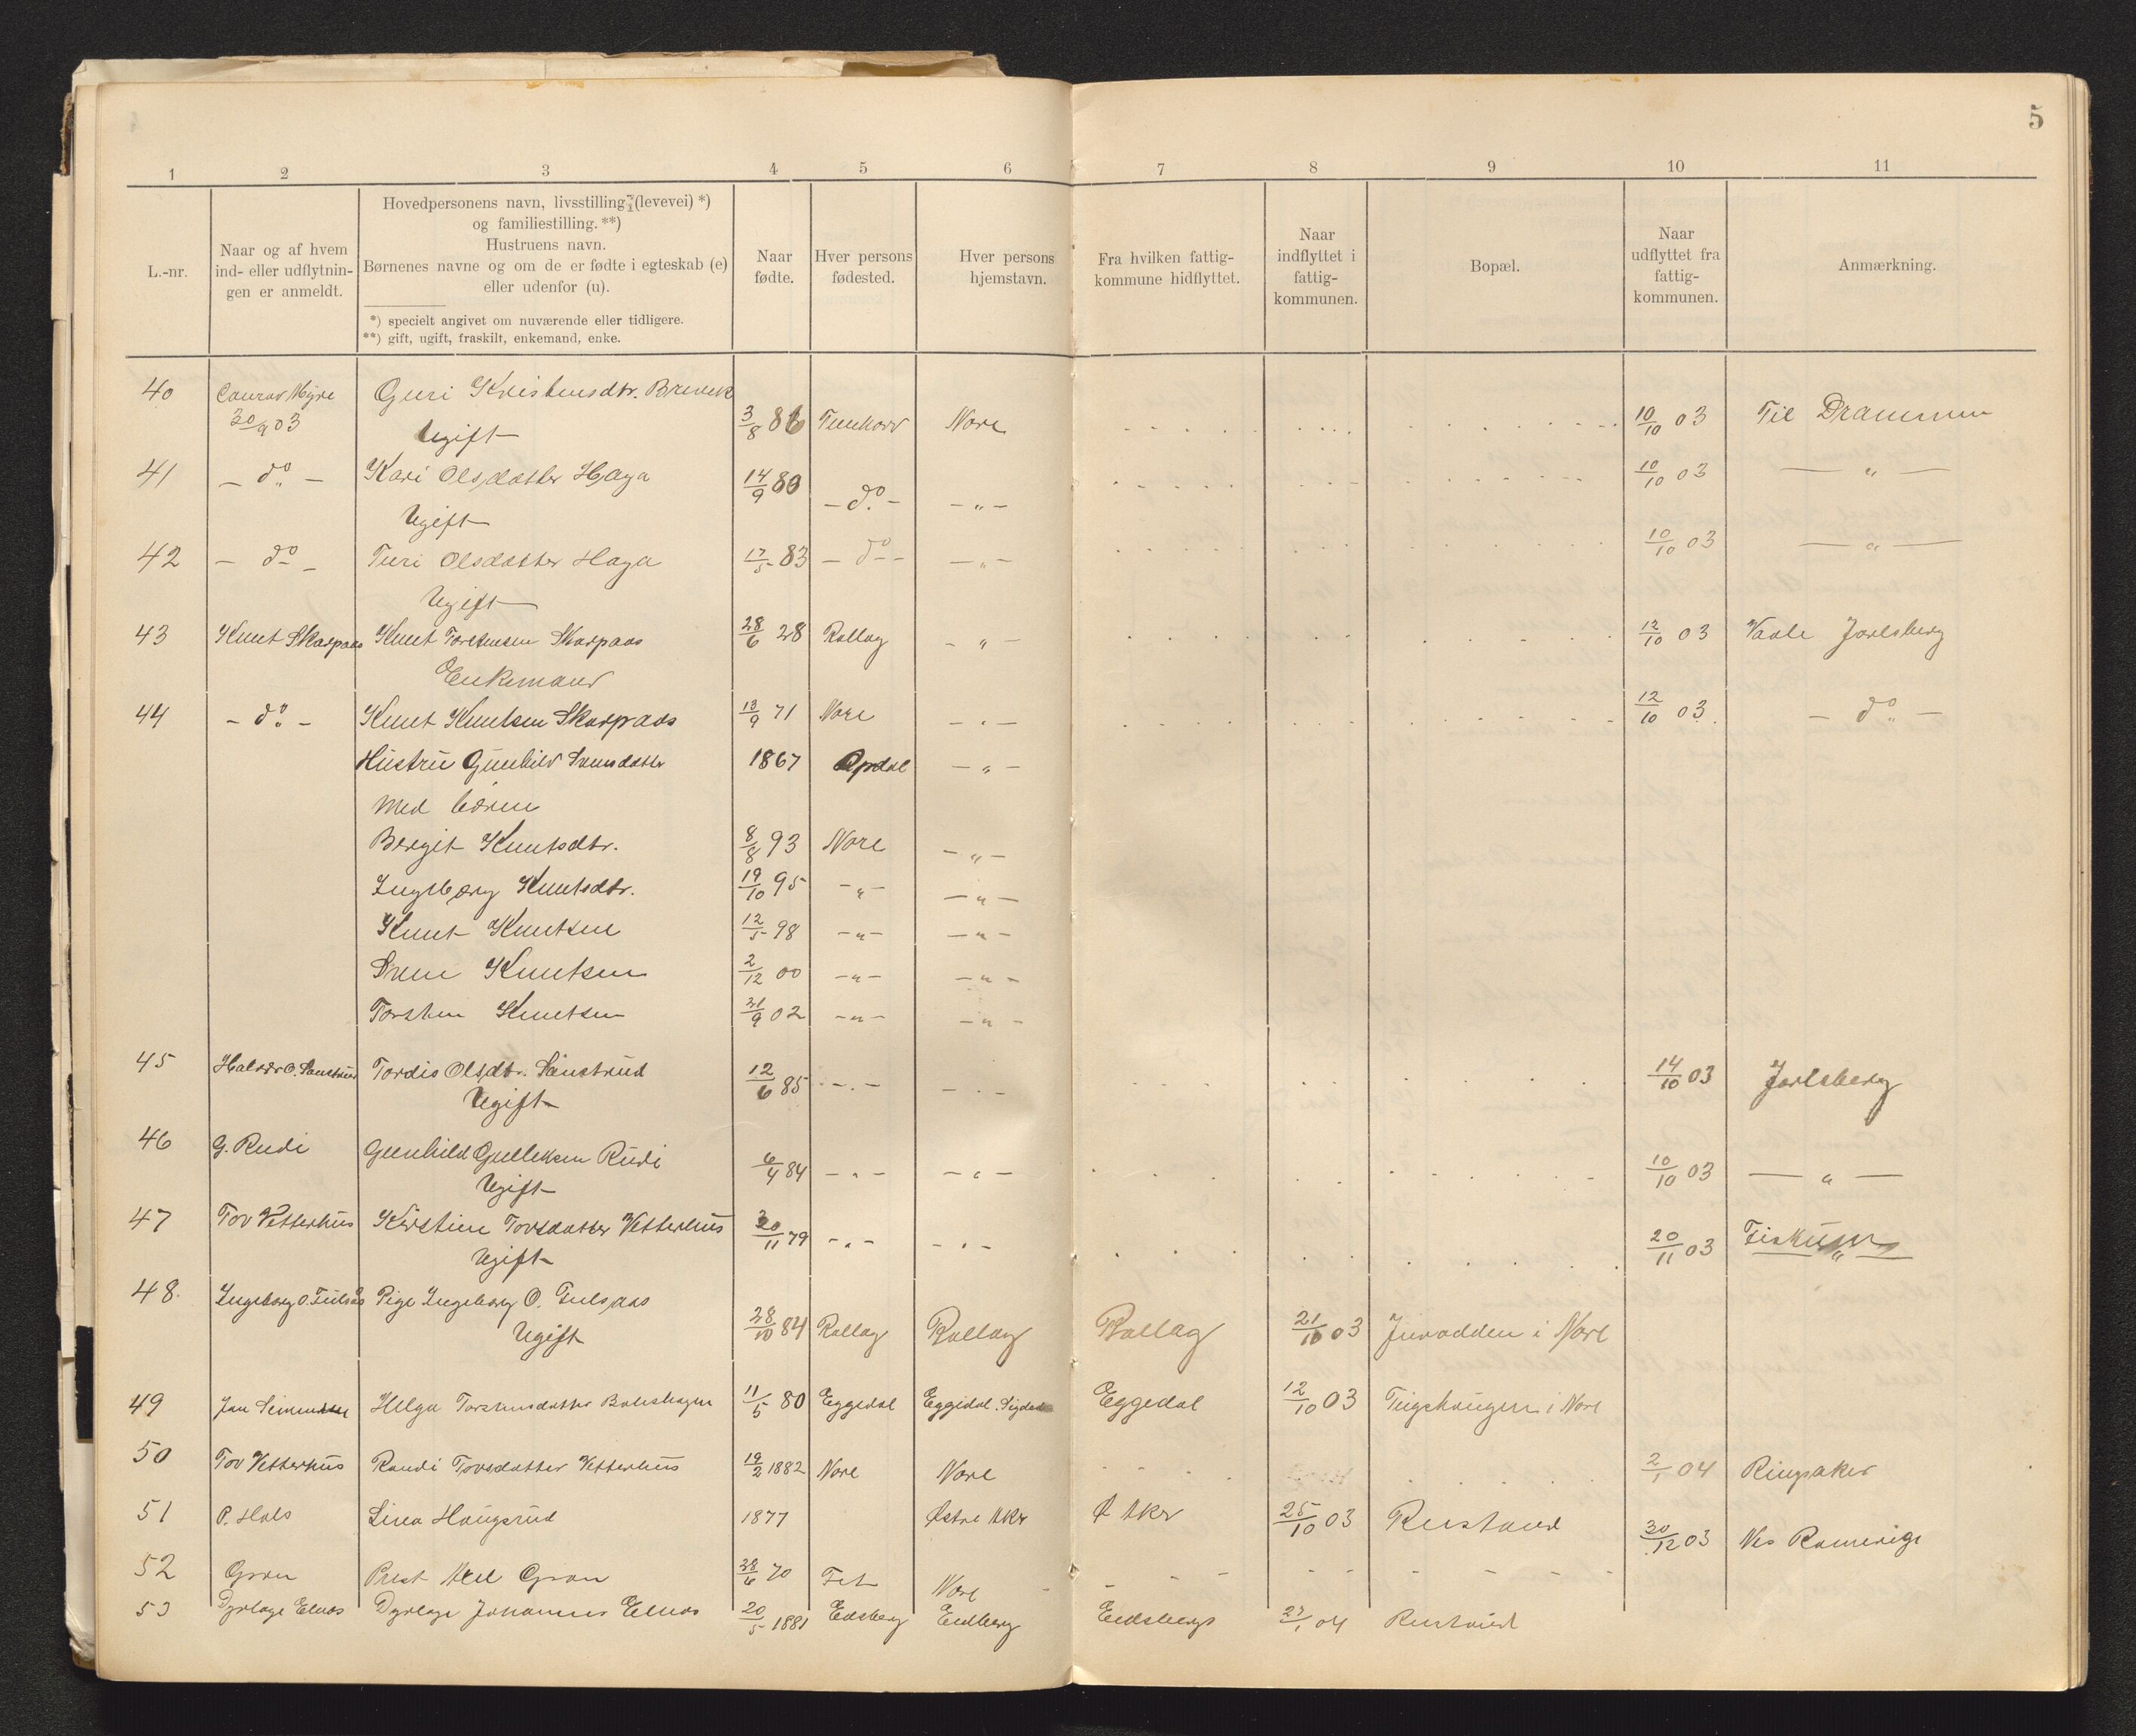 5
1 2 3 4 5 6 7 8 9 10 11
L.-nr.
Naar og af hvem
ind- eller udflytnin-
gen er anmeldt.
Hovedpersonens navn, livsstilling (levevei) *)
og familiestilling. **)
Hustruens navn.
Børnenes navne og om de er fødte i egteskab (e)
eller udenfor (u).
*) specielt angivet om nuværende eller tidligere.
**) gift, ugift, fraskilt, enkemand, enke.
Naar
fødte.
Hver persons
fødested.
Hver persons
hjemstavn.
Fra hvilken fattig-
kommune hidflyttet.
Naar
indflyttet i
fattig-
kommunen.
Bopæl.
Naar
udflyttet fra
fattig-
kommunen.
Anmærkning.
40 Conrad Myre Guri Kristensdtr. Brevik
30/9 03 Ugift 3/8 86 Tunhovd Nore 10/10 03 Til Drammen
41 — do — Kari Olsdatter Haga 14/9 80 — do — — " — 10/10 03 — " —
Ugift
42 — do — Turi Olsdatter Haga 17/5 83 — do — — " — 10/10 03 — " —
Ugift
43 Knut Skarpaas Knut Torstensen Skarpaas 28/6 28 Rollag — " — 12/10 03 Vaale Jarlsberg
Enkemand
44 — do — Knut Knutsen Skarpaas 13/9 71 Nore — " — 12/10 03 — do —
Hustru Gunhild Svensdatter 1867 Opdal — " —
Med børn
Bergit Knutsdtr. 8/8 93 Nore — " —
Ingeborg Knutsdtr. 19/10 95 — " — — " —
Knut Knutsen 12/5 98 — " — — " —
Sven Knutsen 2/12 00 — " — — " —
Torsten Knutsen 21/9 02 — " — — " —
45 Halvor O. Sanstrud Tordis Olsdtr. Sanstrud 12/6 85 — " — — " — 14/10 03 Jarlsberg
Ugift
46 G. Rudi Gunhild Gulleksen Rudi 6/4 84 — " — — " — 10/10 03 — " —
Ugift
47 Tov Vetterhus Kirstine Torsdatter Vetterhus 20/11 79 — " — — " — 20/11 03 Fiskum
Ugift
48. Ingeborg O. Fulsås Pige Ingeborg O. Fulsaas
Ugift 28/10 84 Rollag Rollag Rollag 21/10 03 Juvodden i Nore
49 Jan Simensen Helga Torstensdatter 11/5 80 Eggedal Eggedal. Sigdal Eggedal 12/10 03 i Nore
50 Tov Vetterhus Randi Tovsdatter Vetterhus 19/2 1882 Nore Nore 2/1 04 Ringsaker
51 P. Hals Lina Haugsrud 1877 Østre Aker Ø Aker 25/10 03 Rustaud 30/12 03 Nes Romerige
52 Gran Prest Gran 28/6 70 Fet Nore
53 Dyrlæge Elnæs Dyrlæge Johannes Elnæs 20/5 1881 Edsberg Eidberg Eidsberg 27/1 04 Rustaud